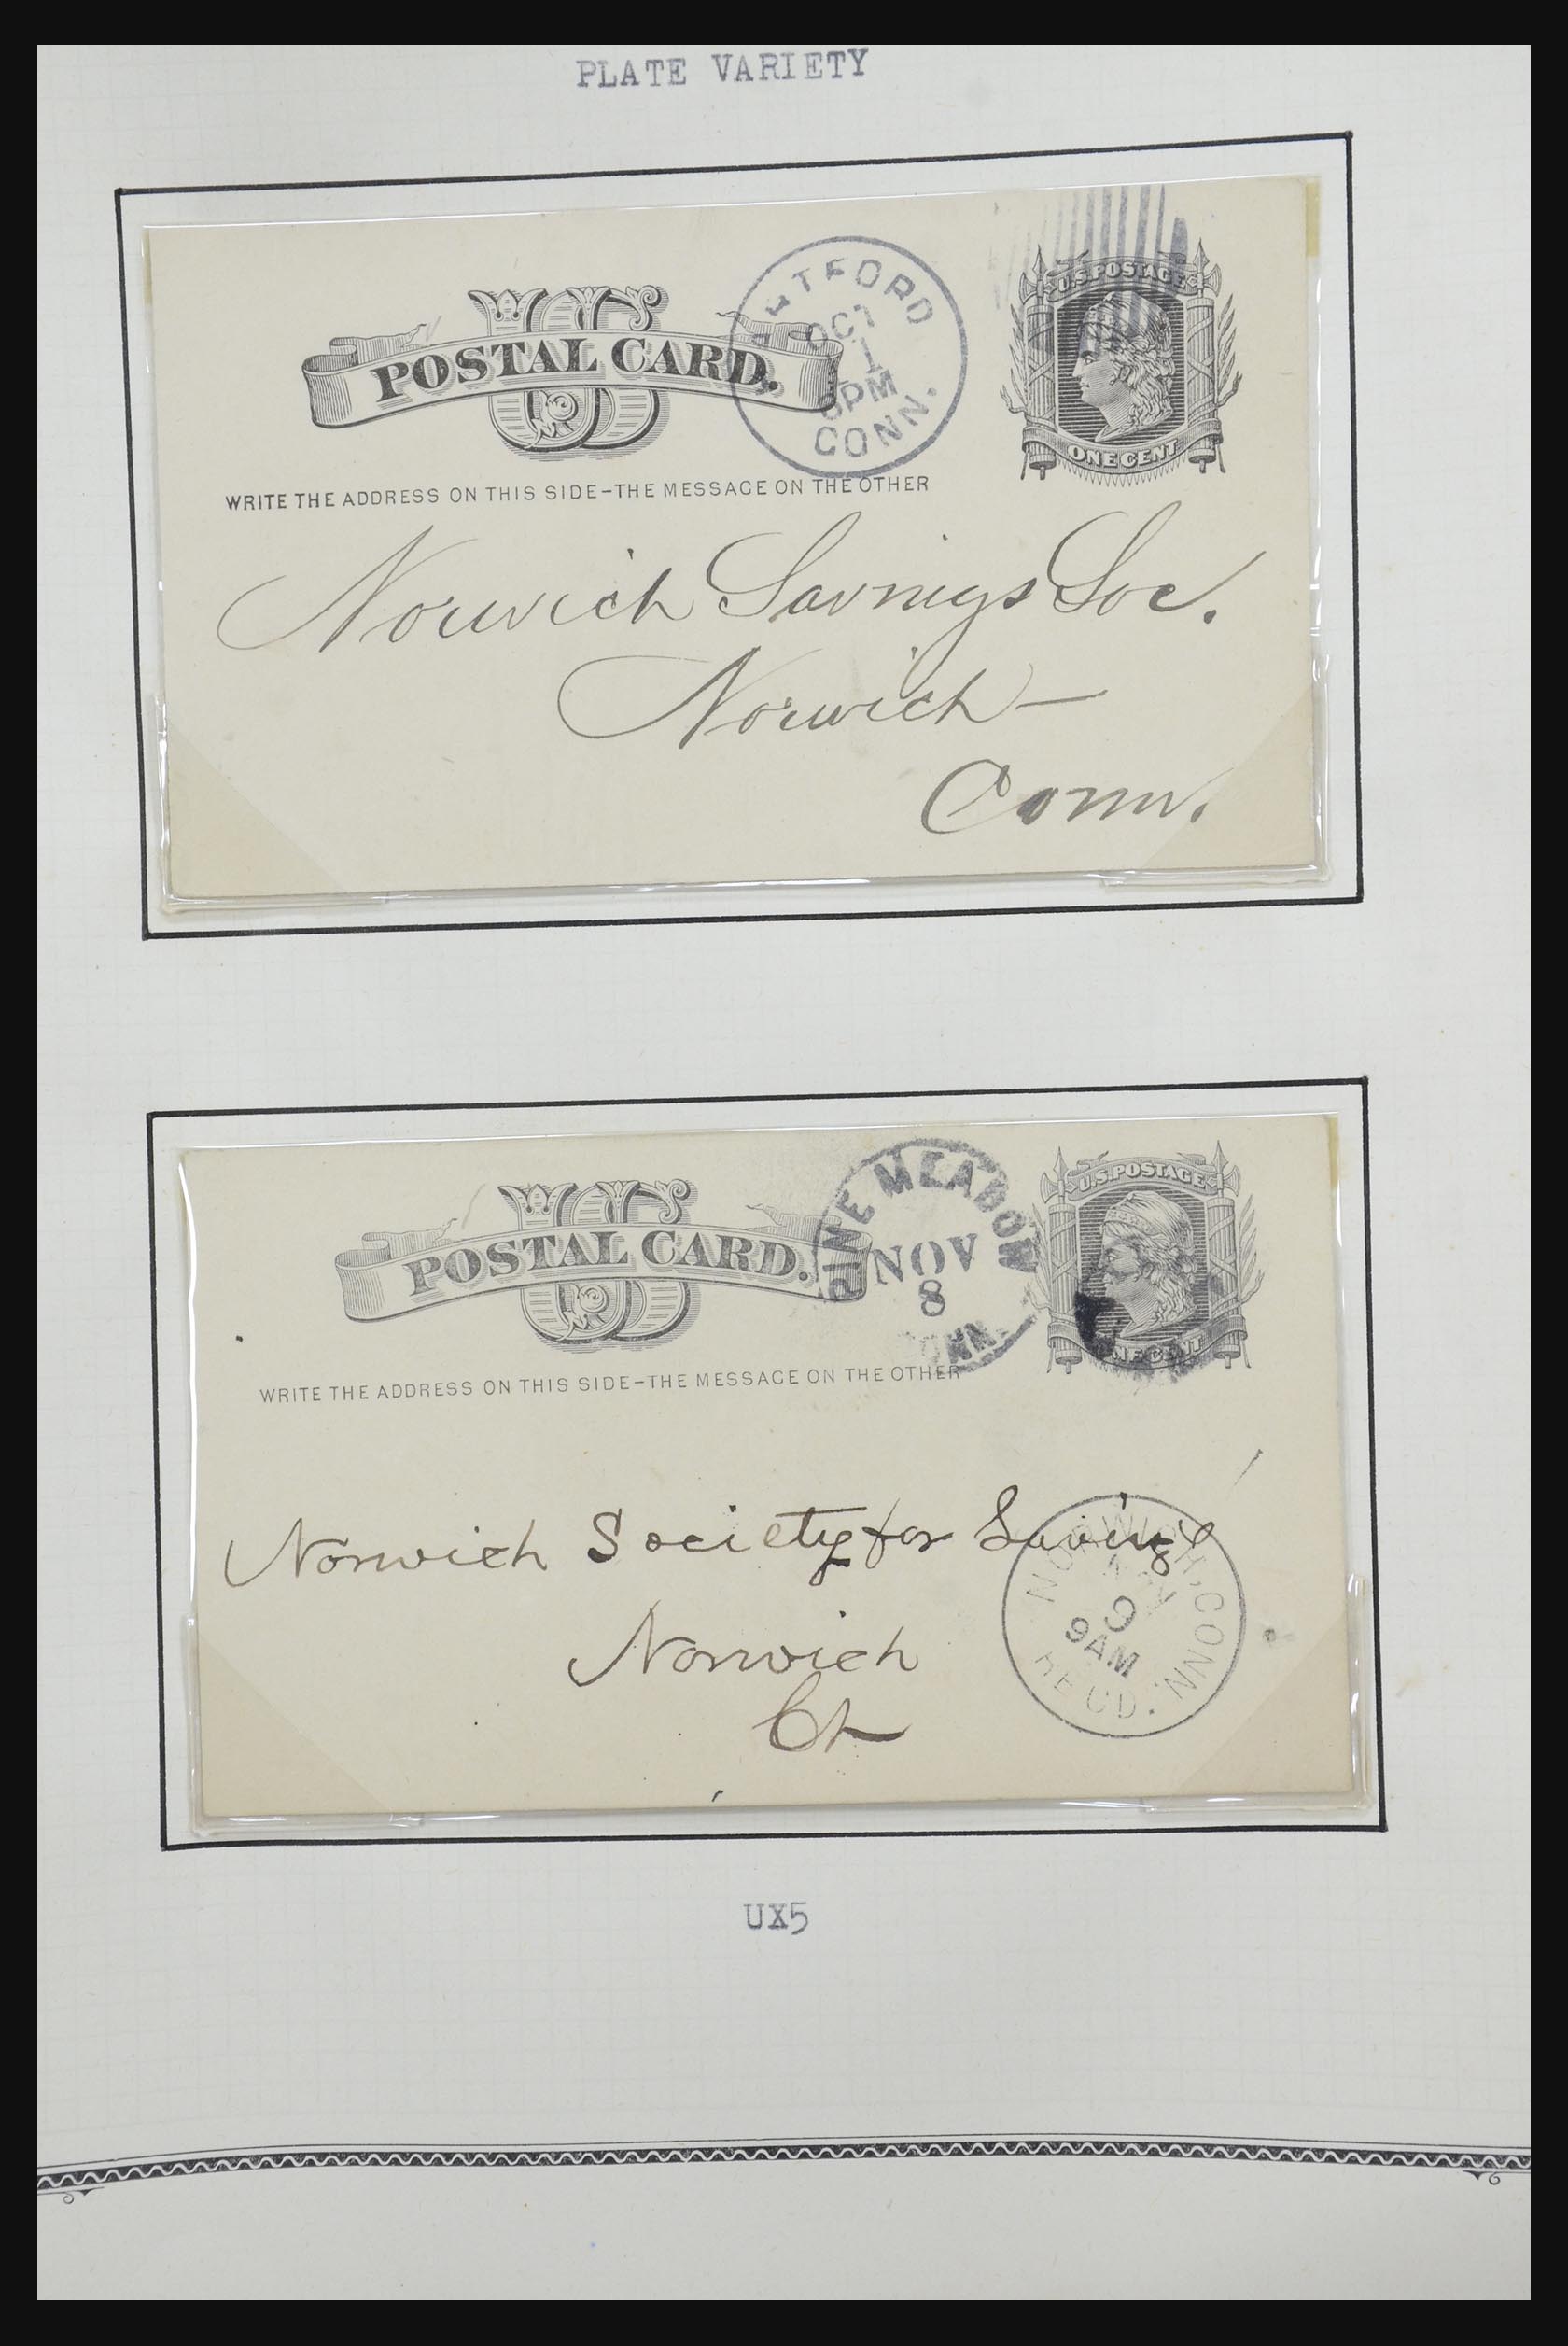 PLATE VARIETY
U.S. POSTAGE
US
POSTAL CARD.
TFORD
OCT
1
PM
CONN.
ONE CENT
WRITE THE ADDRESS ON THIS SIDE-THE MESSAGE ON THE OTHER
Norwich Savings Soc.
Norwich -
Conn.
U.S. POSTAGE
US
POSTAL CARD.
PINE MEADOW
NOV
8
ONN.
ONE CENT
WRITE THE ADDRESS ON THIS SIDE-THE MESSAGE ON THE OTHER
Norwich Society for Savings
Norwich
Ct
NORWICH, CONN.
NOV
9
9AM
REC'D.
UX5